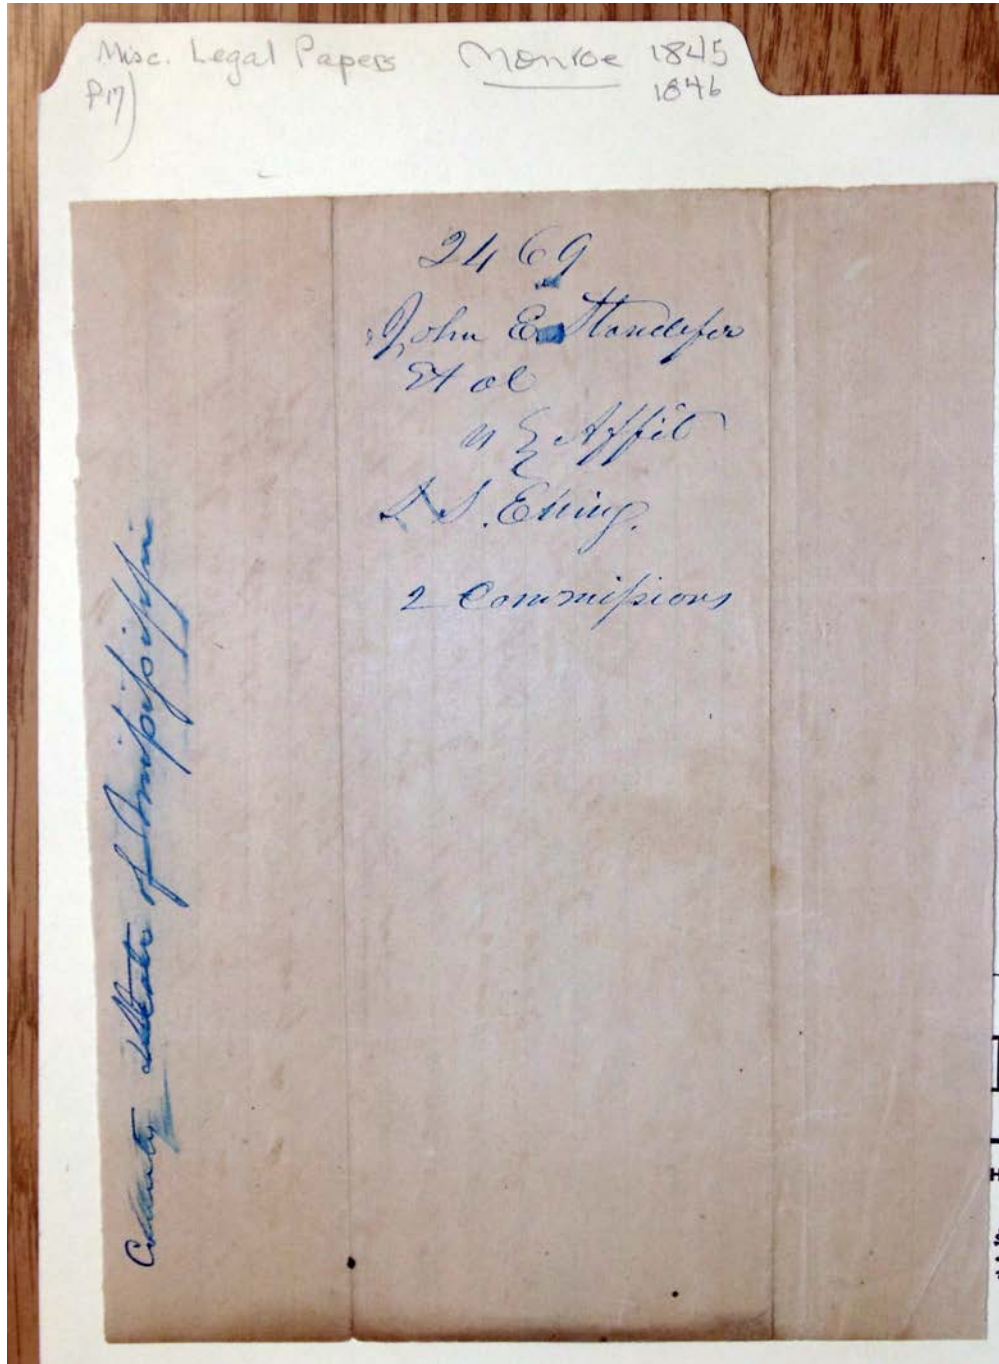 Misc. Legal Papers Monroe 1845
P17) 1846
2469
John E. Standefer
Et al
vs Affit
S. Ewing.
2 Commissions
County State of Mississippi